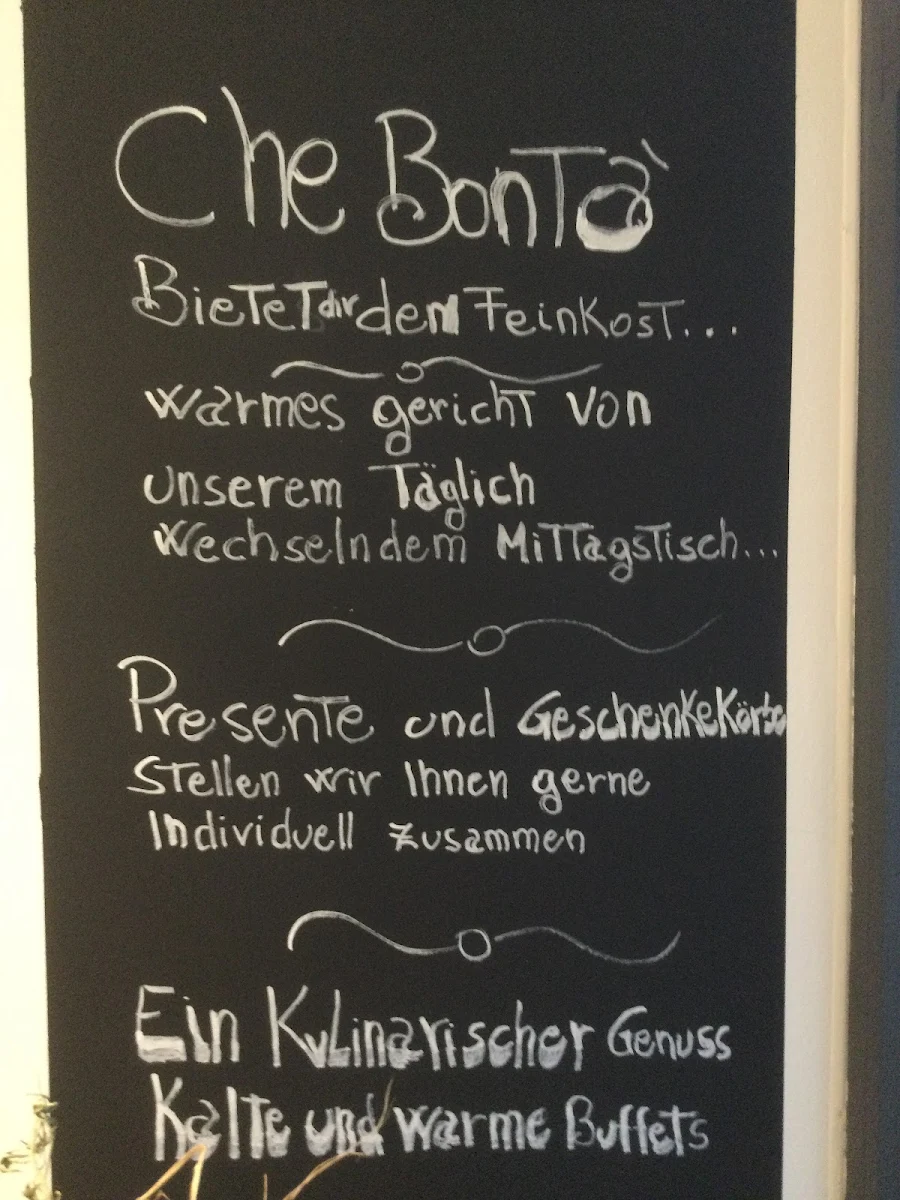 Che BonTà
BieTeT dir den FeinKosT...
warmes gerichT von
unserem Täglich
wechselndem MiTTagsTisch...
PresenTe und GeschenKeKörbe
STellen wir Ihnen gerne
Individuell zusammen
Ein KuLinarischer Genuss
KalTe und warme BuffeTs